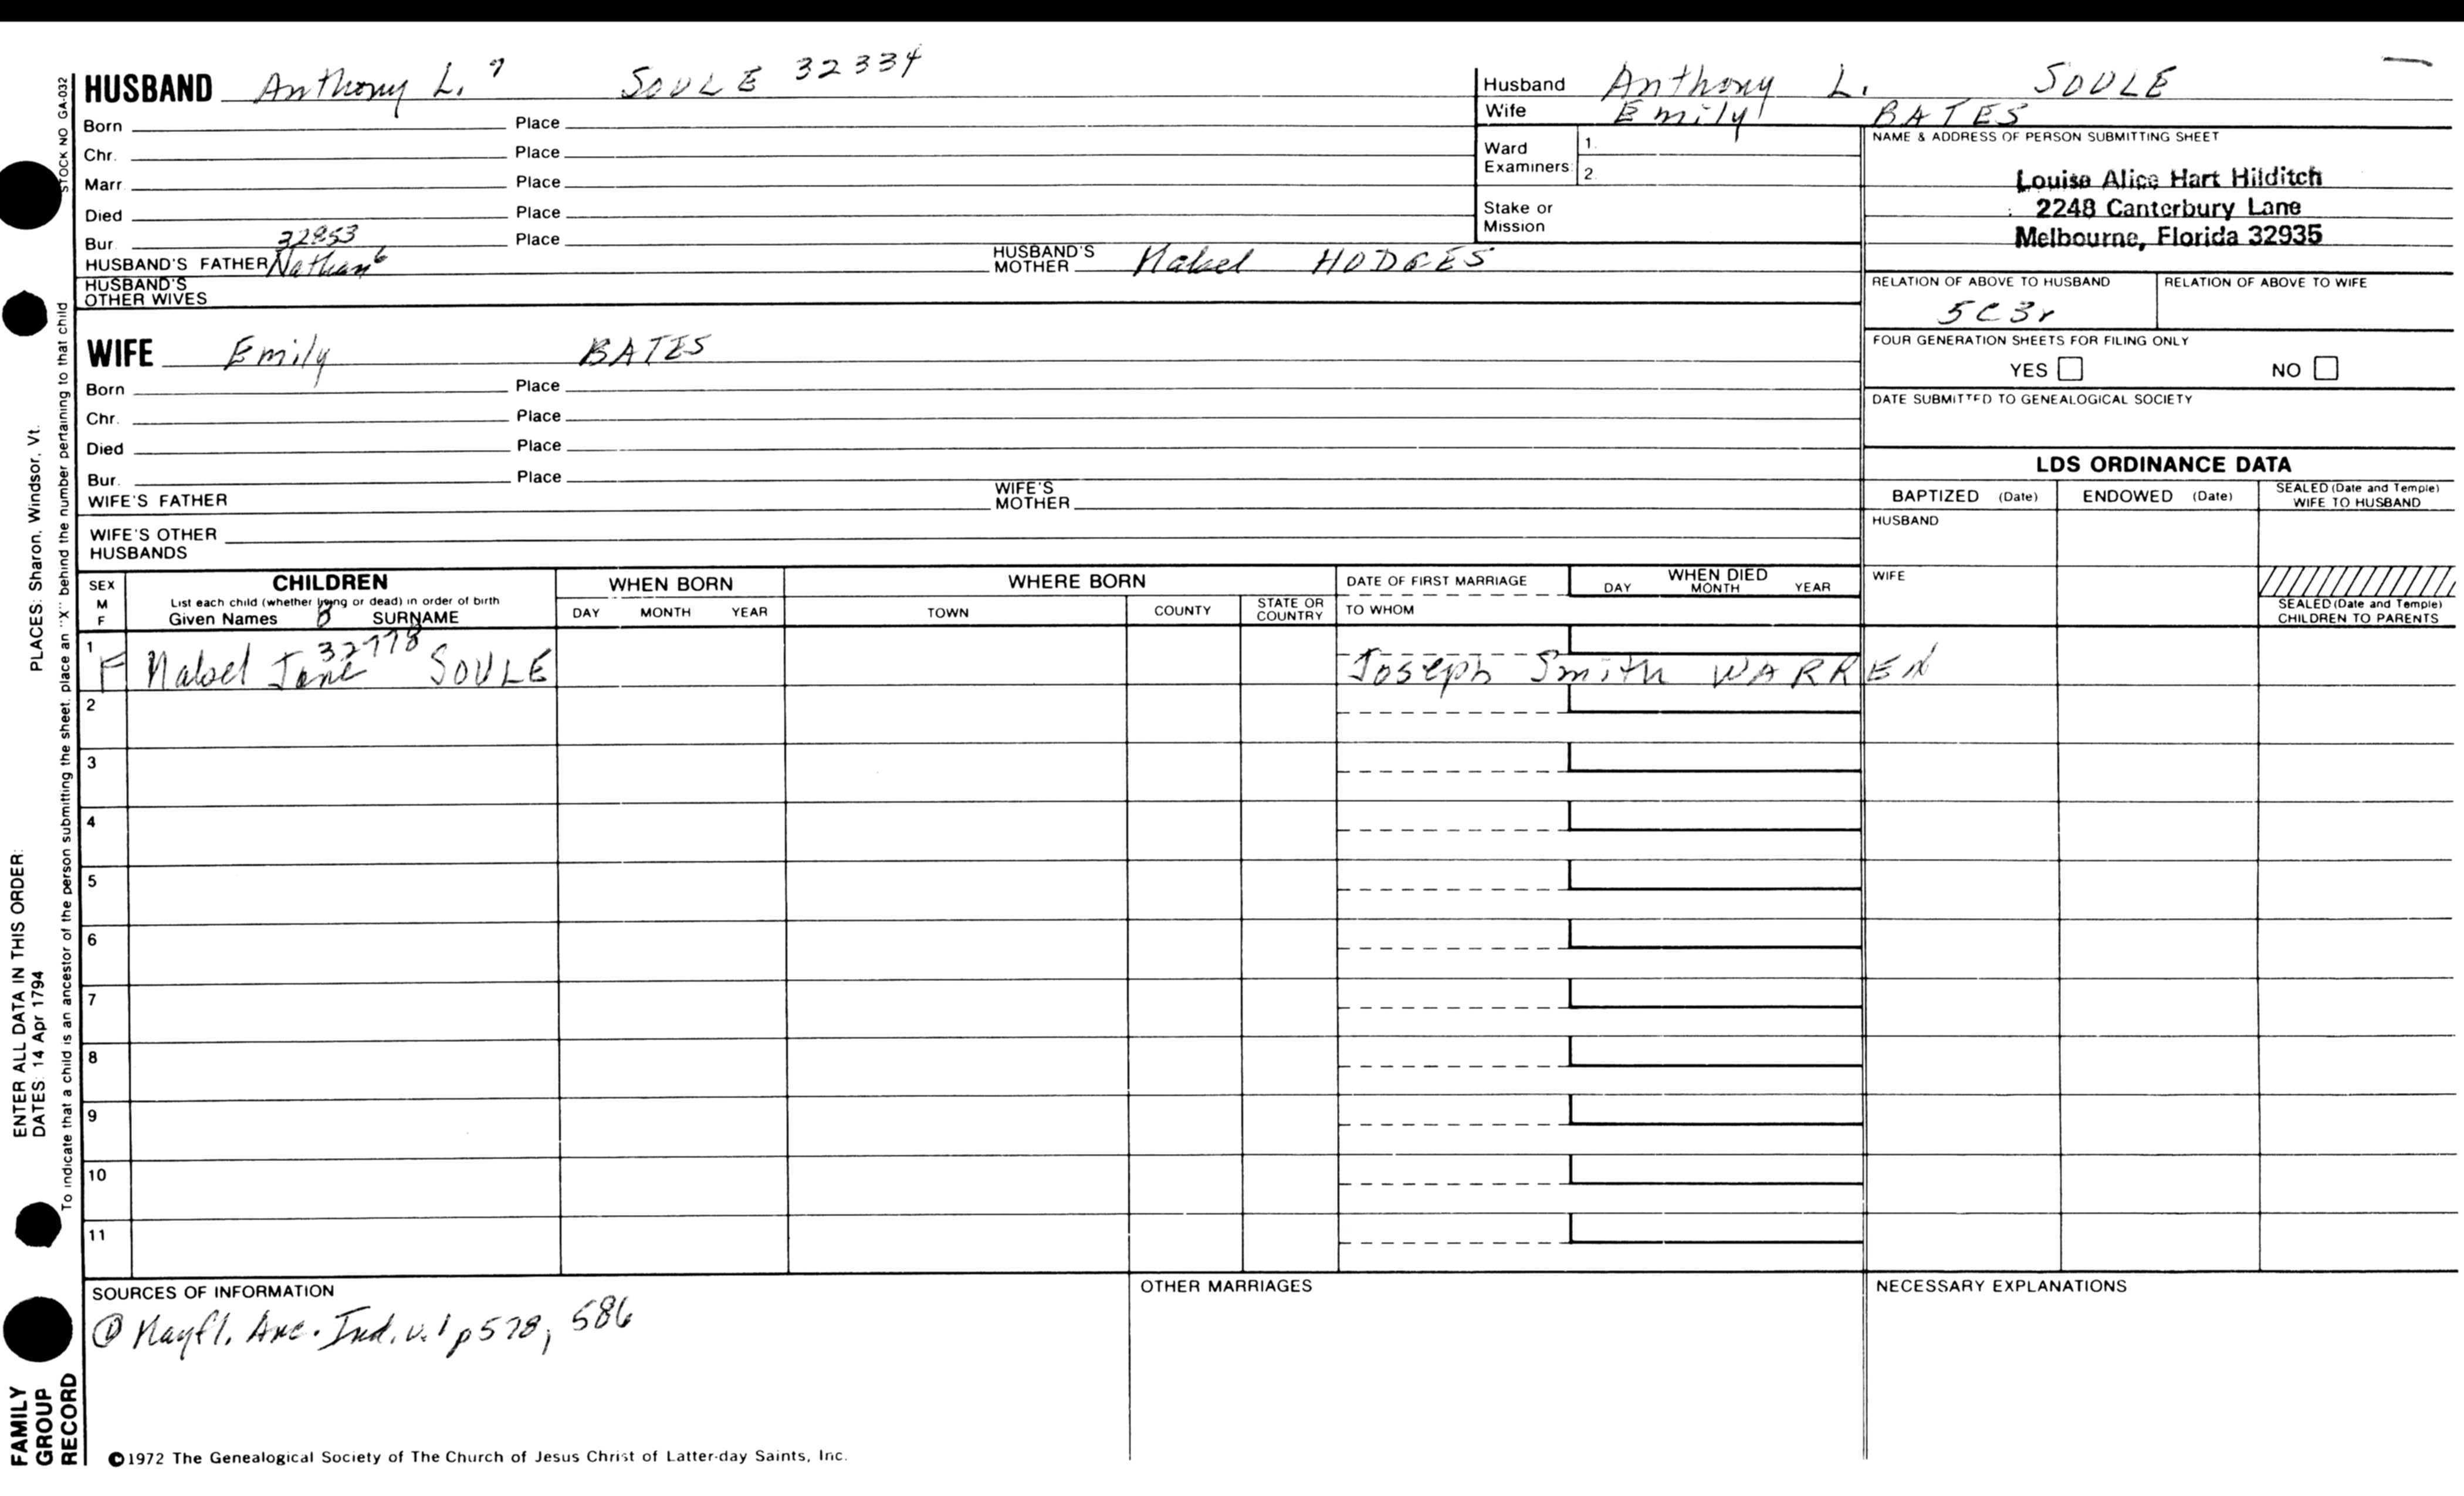 HUSBAND Anthony L. 7 SOULE 32334
Born Place
Chr. Place
Marr. Place
Died Place
Bur. Place
32853
HUSBAND'S FATHER Nathan 6 HUSBAND'S MOTHER Mabel HODGES
HUSBAND'S OTHER WIVES
WIFE Emily BATES
Born Place
Chr. Place
Died Place
Bur. Place
WIFE'S FATHER WIFE'S MOTHER
WIFE'S OTHER HUSBANDS
Husband Anthony L. SOULE
Wife Emily BATES
Ward Examiners: 1.
2.
Stake or Mission
NAME & ADDRESS OF PERSON SUBMITTING SHEET
Louise Alice Hart Hilditch
2248 Canterbury Lane
Melbourne, Florida 32935
RELATION OF ABOVE TO HUSBAND RELATION OF ABOVE TO WIFE
5C3r
FOUR GENERATION SHEETS FOR FILING ONLY
YES NO
DATE SUBMITTED TO GENEALOGICAL SOCIETY
LDS ORDINANCE DATA
BAPTIZED (Date) ENDOWED (Date) SEALED (Date and Temple) WIFE TO HUSBAND
HUSBAND
WIFE
SEALED (Date and Temple) CHILDREN TO PARENTS
SEX M F
CHILDREN
List each child (whether living or dead) in order of birth
Given Names 8 SURNAME
WHEN BORN
DAY MONTH YEAR
WHERE BORN
TOWN COUNTY STATE OR COUNTRY
DATE OF FIRST MARRIAGE
TO WHOM
WHEN DIED
DAY MONTH YEAR
32778
1 F Mabel Jane SOULE Joseph Smith WARREN
2
3
4
5
6
7
8
9
10
11
SOURCES OF INFORMATION
① Mayfl. Anc. Ind. v.1 p578, 586
OTHER MARRIAGES
NECESSARY EXPLANATIONS
©1972 The Genealogical Society of The Church of Jesus Christ of Latter-day Saints, Inc.
STOCK NO GA-032
To indicate that a child is an ancestor of the person submitting the sheet, place an "X" behind the number pertaining to that child
PLACES: Sharon, Windsor, Vt.
ENTER ALL DATA IN THIS ORDER:
DATES: 14 Apr 1794
FAMILY
GROUP
RECORD